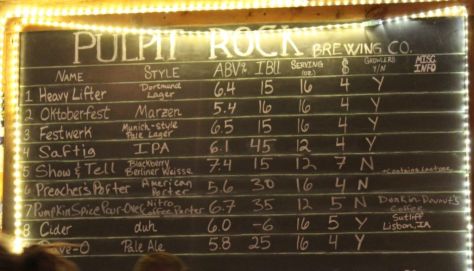 PULPIT ROCK BREWING CO.
NAME STYLE ABV% IBU SERVING (oz.) $ GROWLERS Y/N MISC INFO
1 Heavy Lifter Dortmund Lager 6.4 15 16 4 Y
2 Oktoberfest Marzen 5.4 16 16 4 Y
3 Festwerk Munich-style Pale Lager 6.5 15 16 4 Y
4 Saftig IPA 6.1 45 12 4 Y
5 Show & Tell Blackberry Berliner Weisse 7.4 15 12 7 N *Contains Lactose
6 Preacher's Porter American Porter 5.6 30 16 4 N
7 Pumpkin Spice Pour-Over Nitro Coffee Porter 6.7 35 12 5 N Donkin-Dounut's Coffee
8 Cider duh 6.0 -6 16 5 Y Sutliff Lisbon, IA
-O Pale Ale 5.8 25 16 4 Y